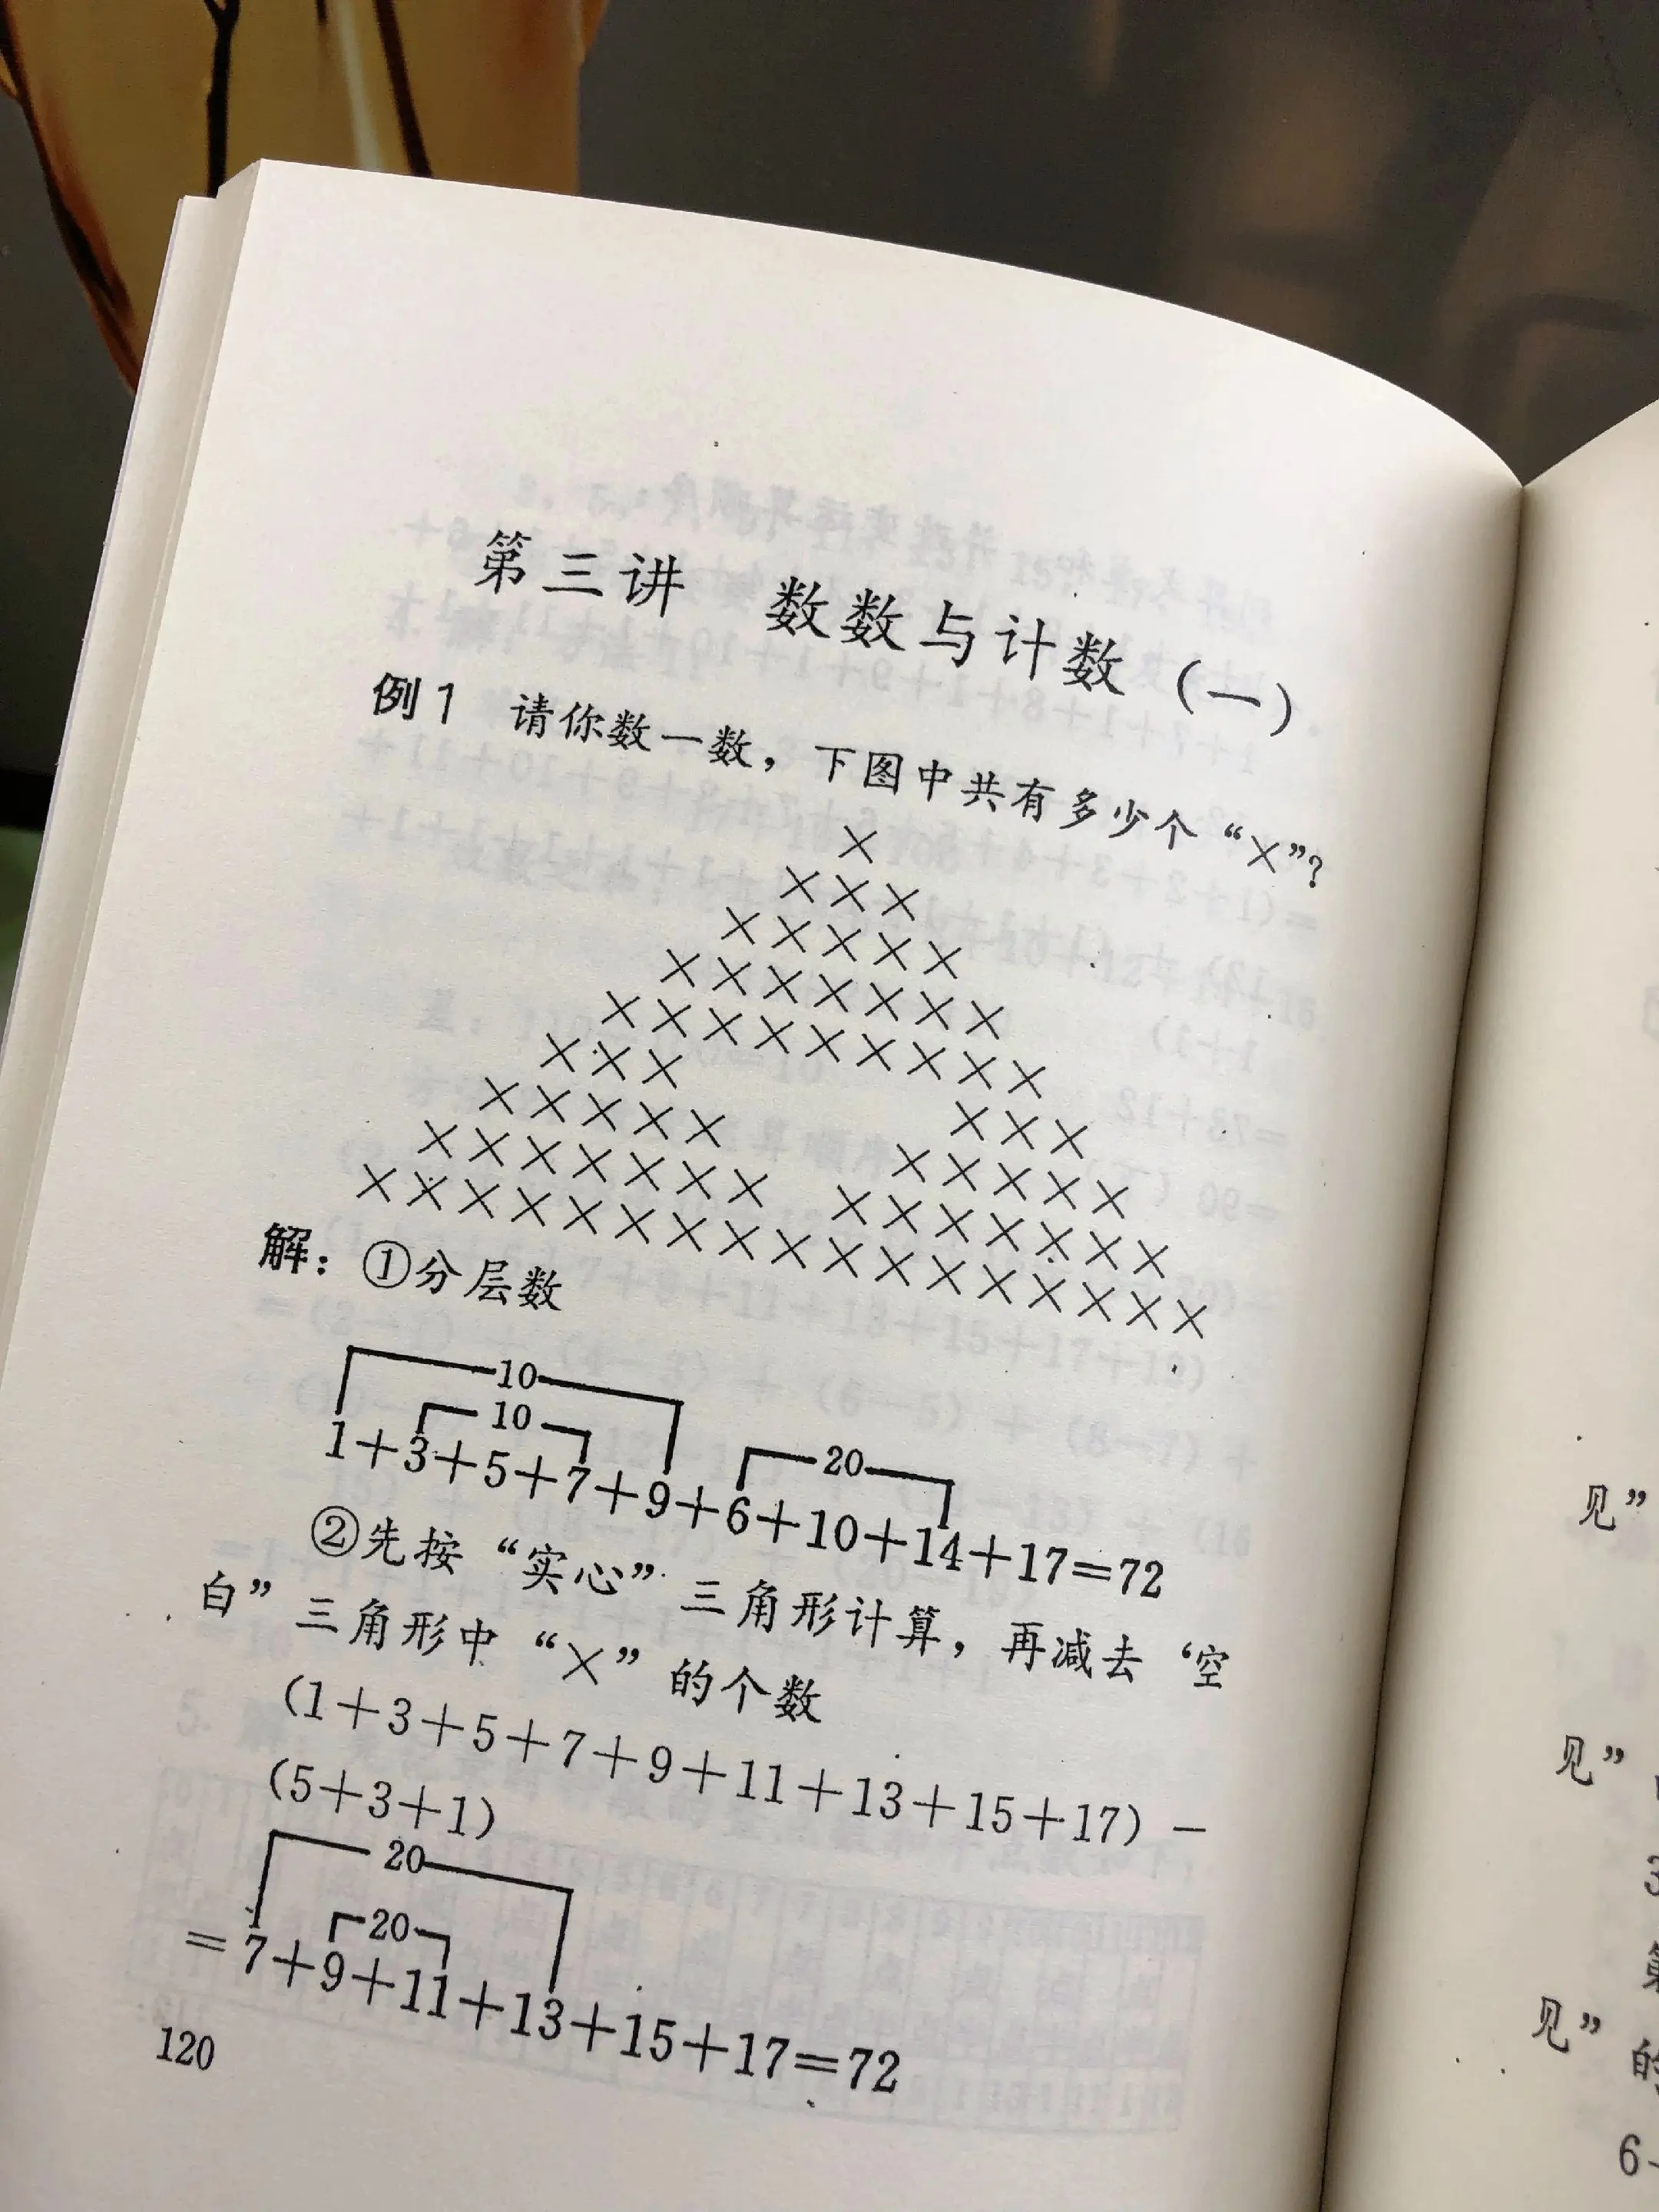 第三讲 数数与计数（一）
例1 请你数一数，下图中共有多少个“×”？
×
× × ×
× × × × ×
× × × × × × ×
× × × × × × × × ×
× × × × × ×
× × × × × × × × × ×
× × × × × × × × × × × × × ×
× × × × × × × × × × × × × × × × ×
解：①分层数
10
10 20
1+3+5+7+9+6+10+14+17=72
②先按“实心”三角形计算，再减去‘空
白”三角形中“×”的个数
(1+3+5+7+9+11+13+15+17)-
(5+3+1)
20
20
=7+9+11+13+15+17=72
120
见”
见”
3
第
见”的
6